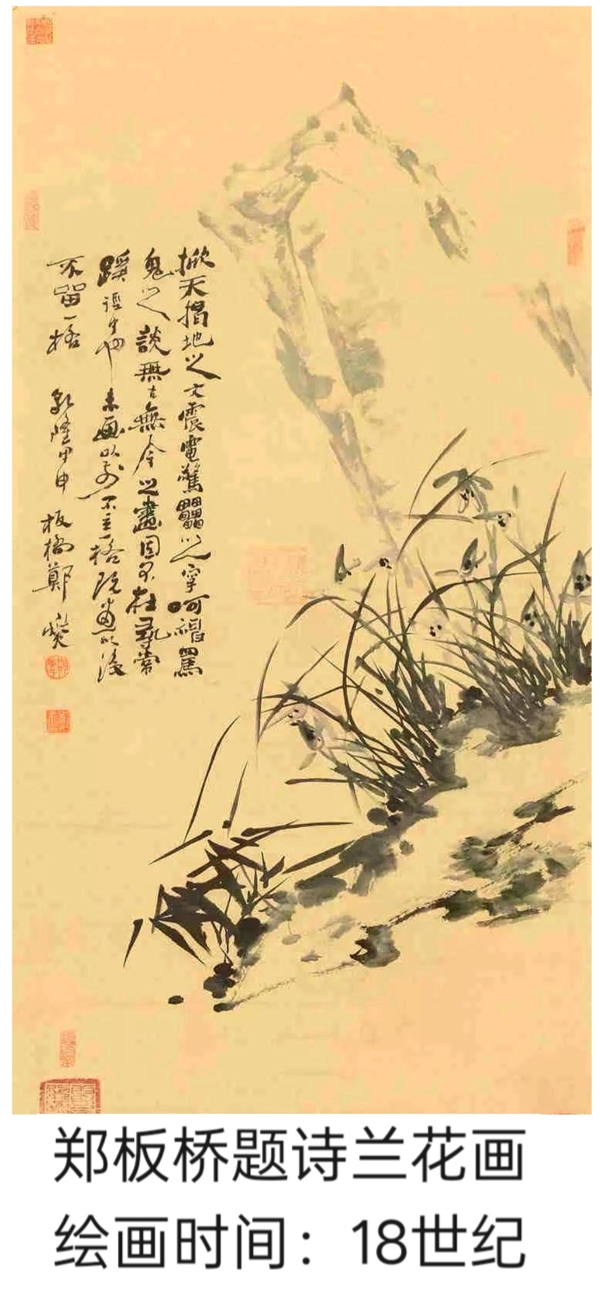 掀天揭地之文震電驚靁之字呵神罵
鬼之談無古無今之畫固不在尋常
蹊徑中也未畫以前不立一格既畫以後
不留一格 乾隆甲申 板橋鄭燮
郑板桥题诗兰花画
绘画时间：18世纪